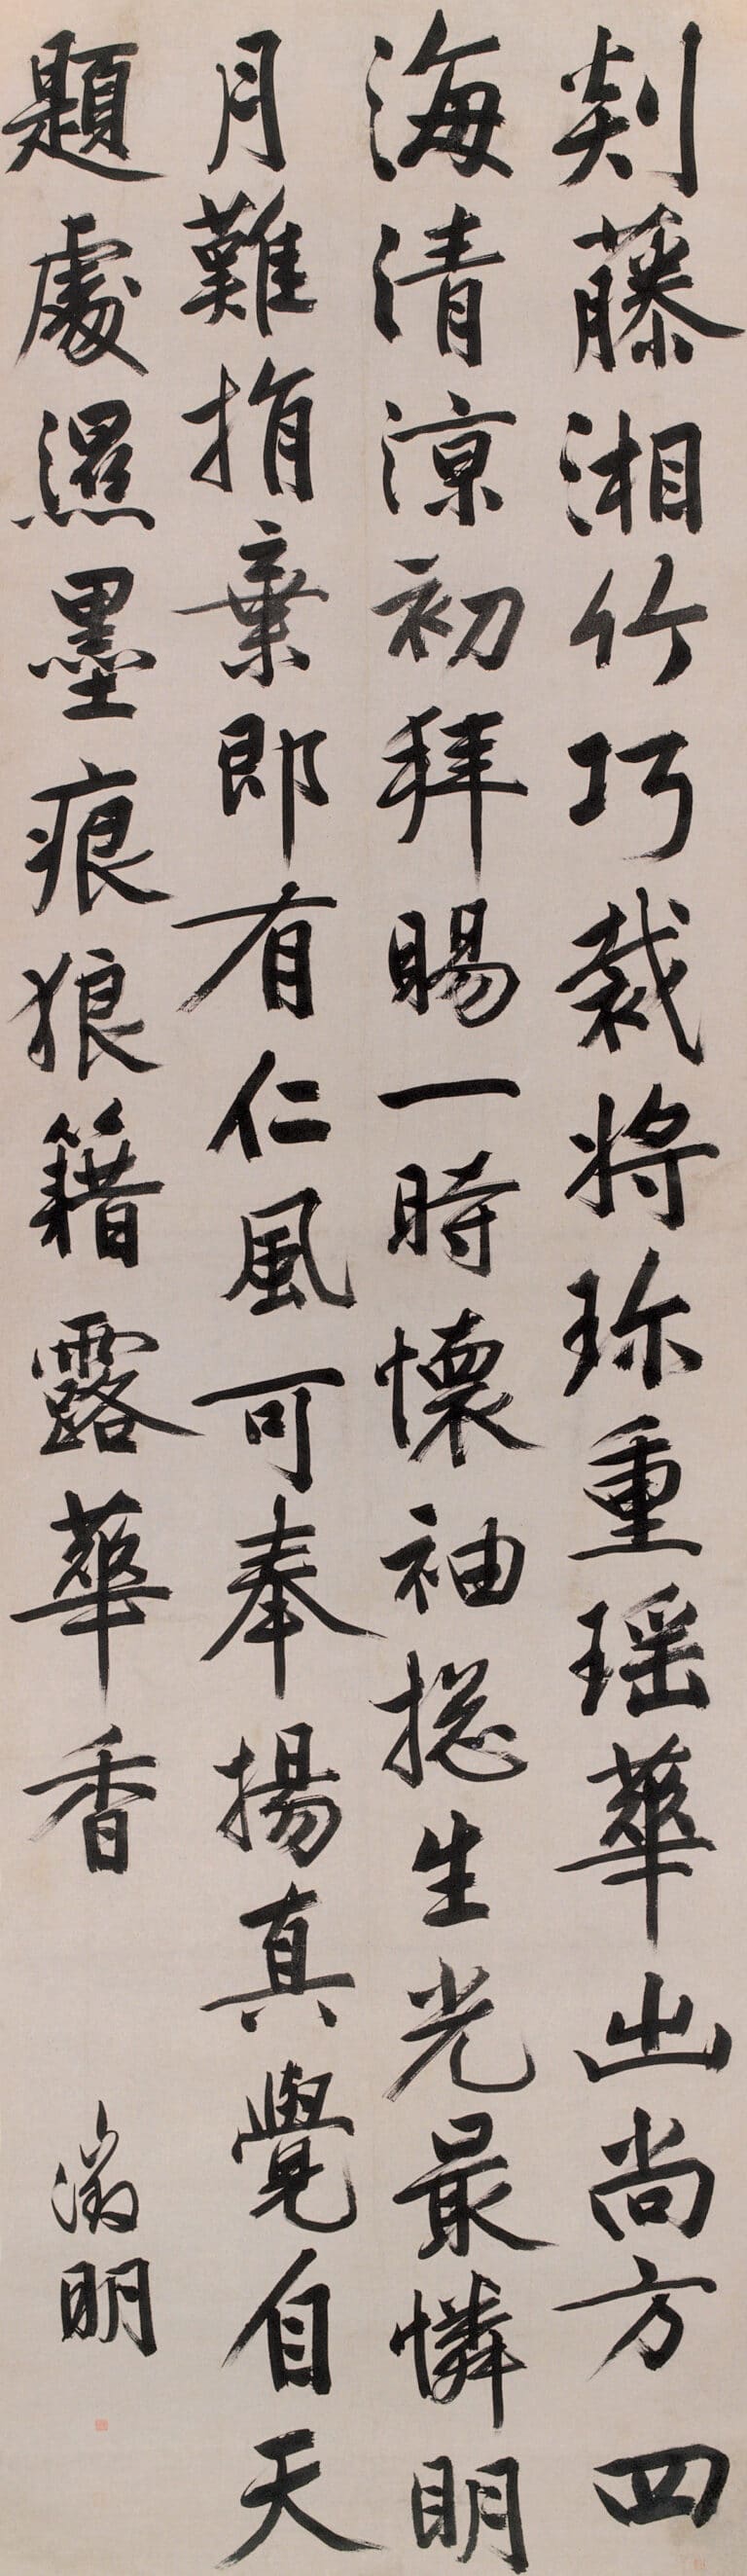 剡藤湘竹巧裁将珎重瑶華出尚方四
海清涼初拜賜一時懷袖揔生光最憐明
月難捐棄即有仁風可奉揚真覺自天
題處濕墨痕狼籍露華香
徵明